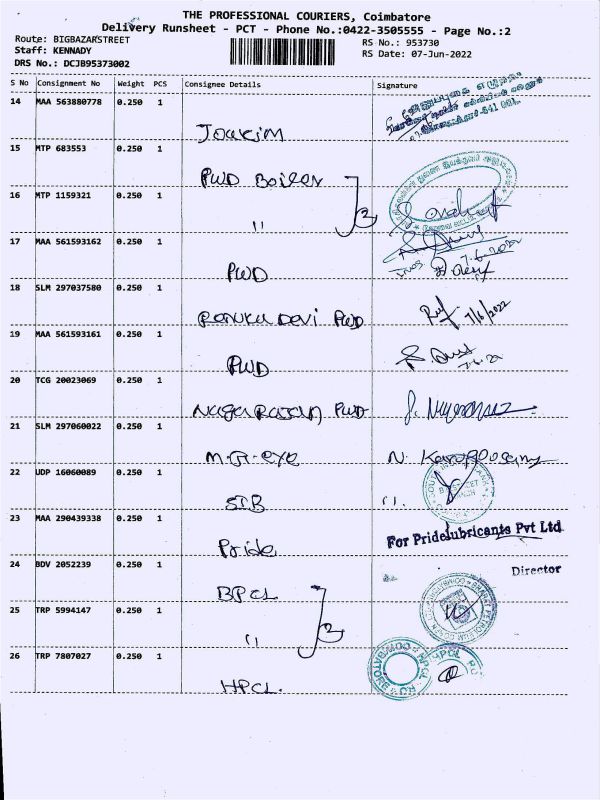 THE PROFESSIONAL COURIERS, Coimbatore
Delivery Runsheet - PCT - Phone No.:0422-3505555 - Page No.:2
Route: BIGBAZARSTREET
RS No.: 953730
Staff: KENNADY
RS Date: 07-Jun-2022
DRS No.: DCJB95373002
S No Consignment No Weight PCS Consignee Details Signature
14 MAA 563880778 0.250 1
Joakim
15 MTP 683553 0.250 1
PWD Boiler
16 MTP 1159321 0.250 1
" 2
17 MAA 561593162 0.250 1
PWD
18 SLM 297037580 0.250 1
Renuka Devi PWD 7/6/2022
19 MAA 561593161 0.250 1
PWD 7.6.22
20 TCG 20023069 0.250 1
Nagarajan PWD
21 SLM 297060022 0.250 1
M.G-eye N. Karuppusamy
22 UDP 16060089 0.250 1
SIB "
23 MAA 290439338 0.250 1
Pride For Pridelubricants Pvt Ltd
24 BDV 2052239 0.250 1 Director
BPCL
25 TRP 5994147 0.250 1
" 2
26 TRP 7807027 0.250 1 HPCL
HPCL.